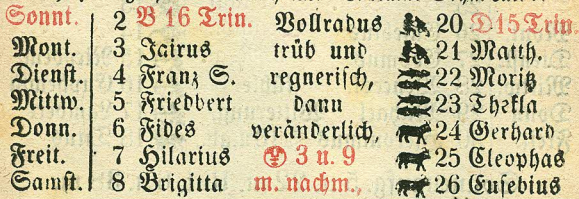 Sonnt. 2 B 16 Trin. Vollradus 20 D15 Trin.
Mont. 3 Jairus trüb und 21 Matth.
Dienst. 4 Franz S. regnerisch, 22 Moritz
Mittw. 5 Friedbert dann 23 Thekla
Donn. 6 Fides veränderlich, 24 Gerhard
Freit. 7 Hilarius 3 u. 9 25 Cleophas
Samst. 8 Brigitta m. nachm., 26 Eusebius